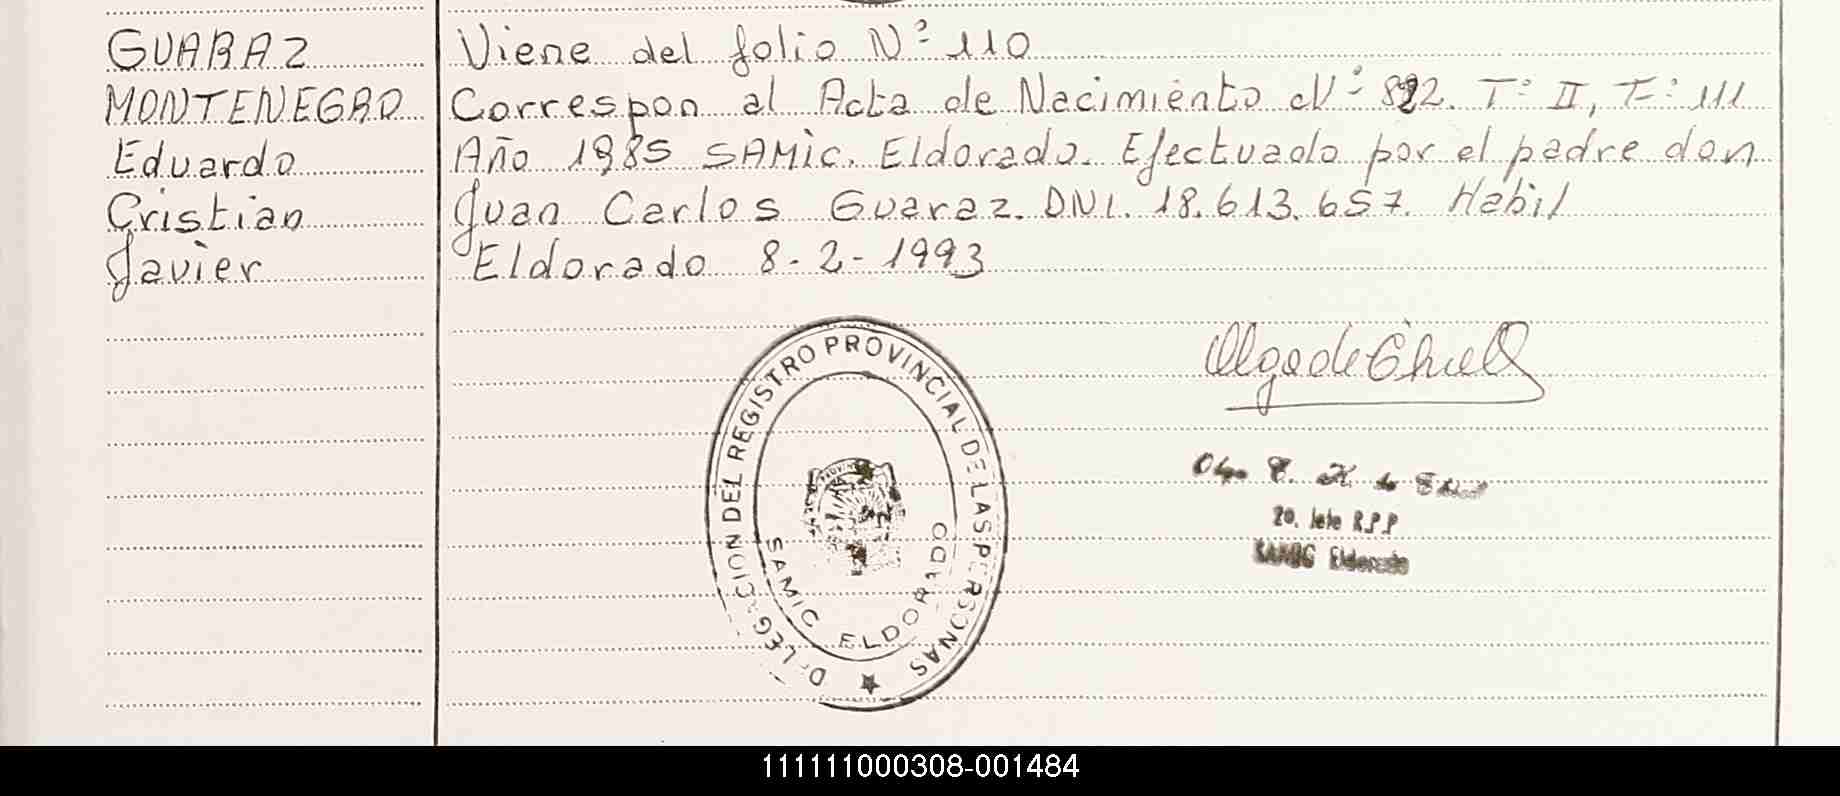 GUARAZ
MONTENEGRO
Eduardo
Cristian
Javier
Viene del folio Nº 110
Correspon al Acta de Nacimiento Nº 892. Tº II, Fº 111
Año 1985 SAMIC. Eldorado. Efectuado por el padre don
Juan Carlos Guaraz. DNI. 18.613.657. Habil
Eldorado 8-2-1993
DELEGACION DEL REGISTRO PROVINCIAL DE LAS PERSONAS
SAMIC ELDORADO
Olga de
Olga E. K. de
2o. Jefe R.P.P
SAMIC Eldorado
111111000308-001484